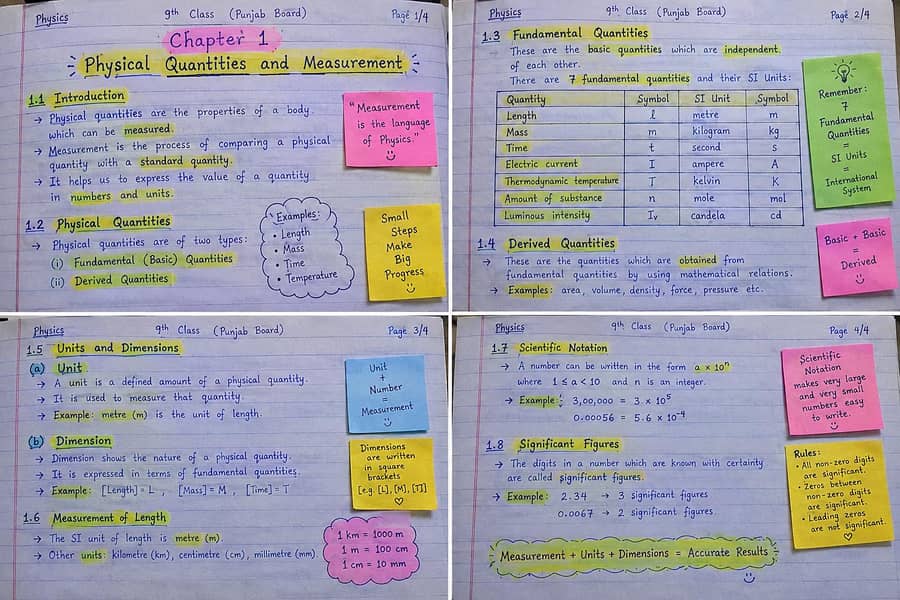 Physics
9th Class (Punjab Board)
Page 1/4
Chapter 1
Physical Quantities and Measurement
1.1 Introduction
→ Physical quantities are the properties of a body
which can be measured.
→ Measurement is the process of comparing a physical
quantity with a standard quantity.
→ It helps us to express the value of a quantity
in numbers and units.
"Measurement
is the language
of Physics."
1.2 Physical Quantities
→ Physical quantities are of two types:
(i) Fundamental (Basic) Quantities
(ii) Derived Quantities
Examples:
• Length
• Mass
• Time
• Temperature
Small
Steps
Make
Big
Progress
Physics
9th Class (Punjab Board)
Page 2/4
1.3 Fundamental Quantities
These are the basic quantities which are independent.
of each other.
There are 7 fundamental quantities and their SI Units:
Quantity Symbol SI Unit Symbol
Length l metre m
Mass m kilogram kg
Time t second s
Electric current I ampere A
Thermodynamic temperature T kelvin K
Amount of substance n mole mol
Luminous intensity Iv candela cd
Remember:
7
Fundamental
Quantities
=
SI Units
=
International
System
1.4 Derived Quantities
→ These are the quantities which are obtained from
fundamental quantities by using mathematical relations.
→ Examples: area, volume, density, force, pressure etc.
Basic + Basic
=
Derived
Physics
9th Class (Punjab Board)
Page 3/4
1.5 Units and Dimensions
(a) Unit
→ A unit is a defined amount of a physical quantity.
→ It is used to measure that quantity.
→ Example: metre (m) is the unit of length.
Unit
+
Number
=
Measurement
(b) Dimension
→ Dimension shows the nature of a physical quantity.
→ It is expressed in terms of fundamental quantities.
→ Example: [Length] = L , [Mass] = M , [Time] = T
Dimensions
are written
in square
brackets
[e.g. [L], [M], [T]]
1.6 Measurement of Length
→ The SI unit of length is metre (m).
→ Other units: kilometre (km), centimetre (cm), millimetre (mm).
1 km = 1000 m
1 m = 100 cm
1 cm = 10 mm
Physics
9th Class (Punjab Board)
Page 4/4
1.7 Scientific Notation
→ A number can be written in the form a × 10ⁿ
where 1 ≤ a < 10 and n is an integer.
→ Example: 3,00,000 = 3 × 10⁵
0.00056 = 5.6 × 10⁻⁴
Scientific
Notation
makes very large
and very small
numbers easy
to write.
1.8 Significant Figures
→ The digits in a number which are known with certainty
are called significant figures.
→ Example: 2.34 → 3 significant figures
0.0067 → 2 significant figures.
Rules:
• All non-zero digits
are significant.
• Zeros between
non-zero digits
are significant.
• Leading zeros
are not significant.
Measurement + Units + Dimensions = Accurate Results